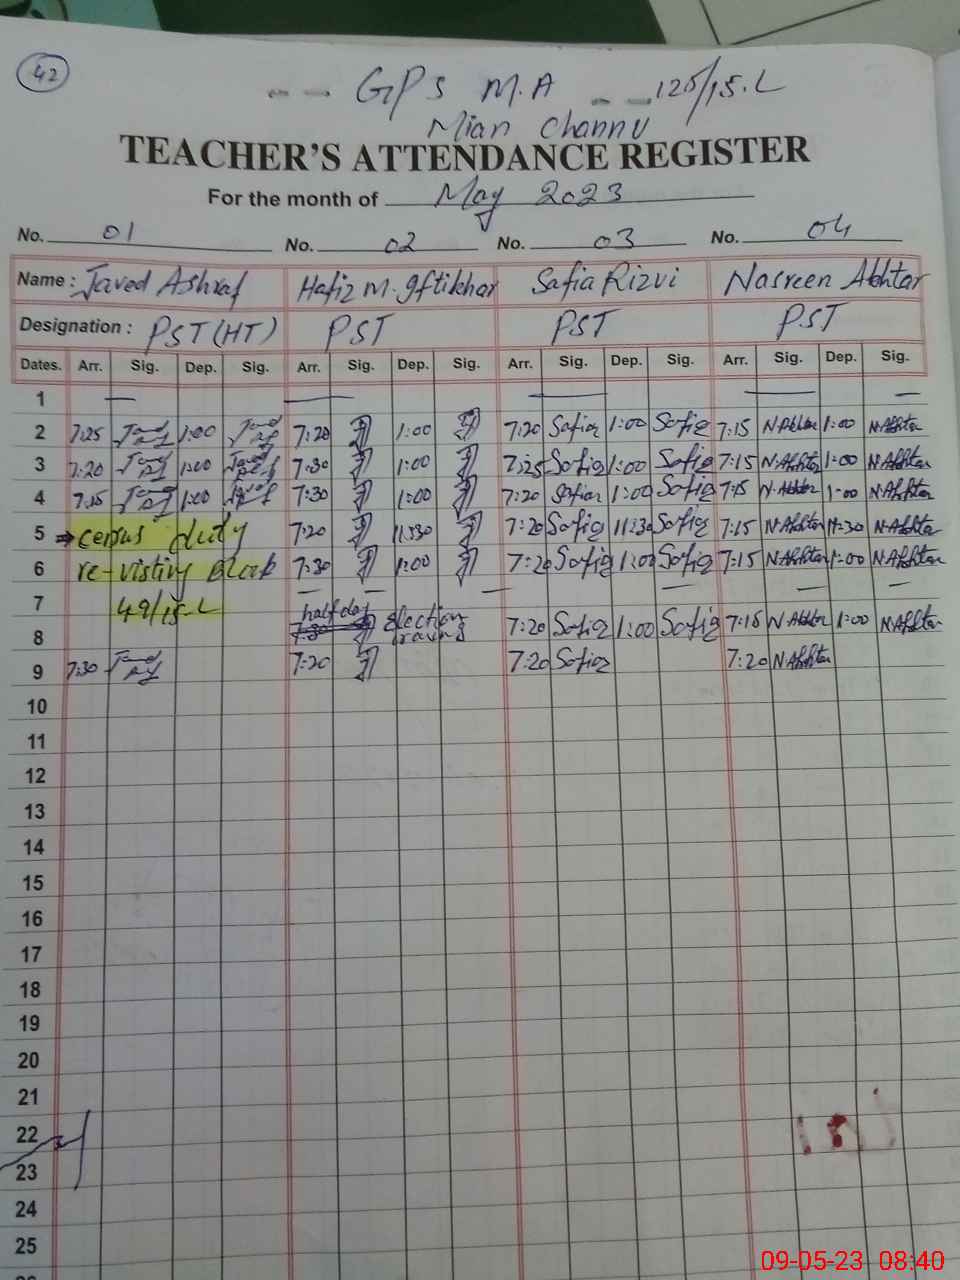 42
-- GPS M.A -- 125/15.L
Mian Channu
TEACHER'S ATTENDANCE REGISTER
For the month of May 2023
No. 01 No. 02 No. 03 No. 04
Name : Javed Ashraf Hafiz M. Iftikhar Safia Rizvi Nasreen Akhtar
Designation : PST (HT) PST PST PST
Dates. Arr. Sig. Dep. Sig. Arr. Sig. Dep. Sig. Arr. Sig. Dep. Sig. Arr. Sig. Dep. Sig.
1 — — — — —
2 7:25 1:00 7:20 1:00 7:20 Safia 1:00 Safia 7:15 N.Akhtar 1:00 N.Akhtar
3 7:20 1:00 7:30 1:00 7:25 Safia 1:00 Safia 7:15 N.Akhtar 1:00 N.Akhtar
4 7:15 1:00 7:30 1:00 7:20 Safia 1:00 Safia 7:15 N.Akhtar 1:00 N.Akhtar
5 → census duty 7:20 11:30 7:20 Safia 11:30 Safia 7:15 N.Akhtar 11:30 N.Akhtar
6 re-visting Block 7:30 1:00 7:20 Safia 1:00 Safia 7:15 N.Akhtar 1:00 N.Akhtar
7 49/15-L — — — — — —
8 half day Election 7:20 Safia 1:00 Safia 7:15 N.Akhtar 1:00 N.Akhtar
9 7:30 7:20 7:20 Safia 7:20 N.Akhtar
10
11
12
13
14
15
16
17
18
19
20
21
22
23
24
25
09-05-23 08:40